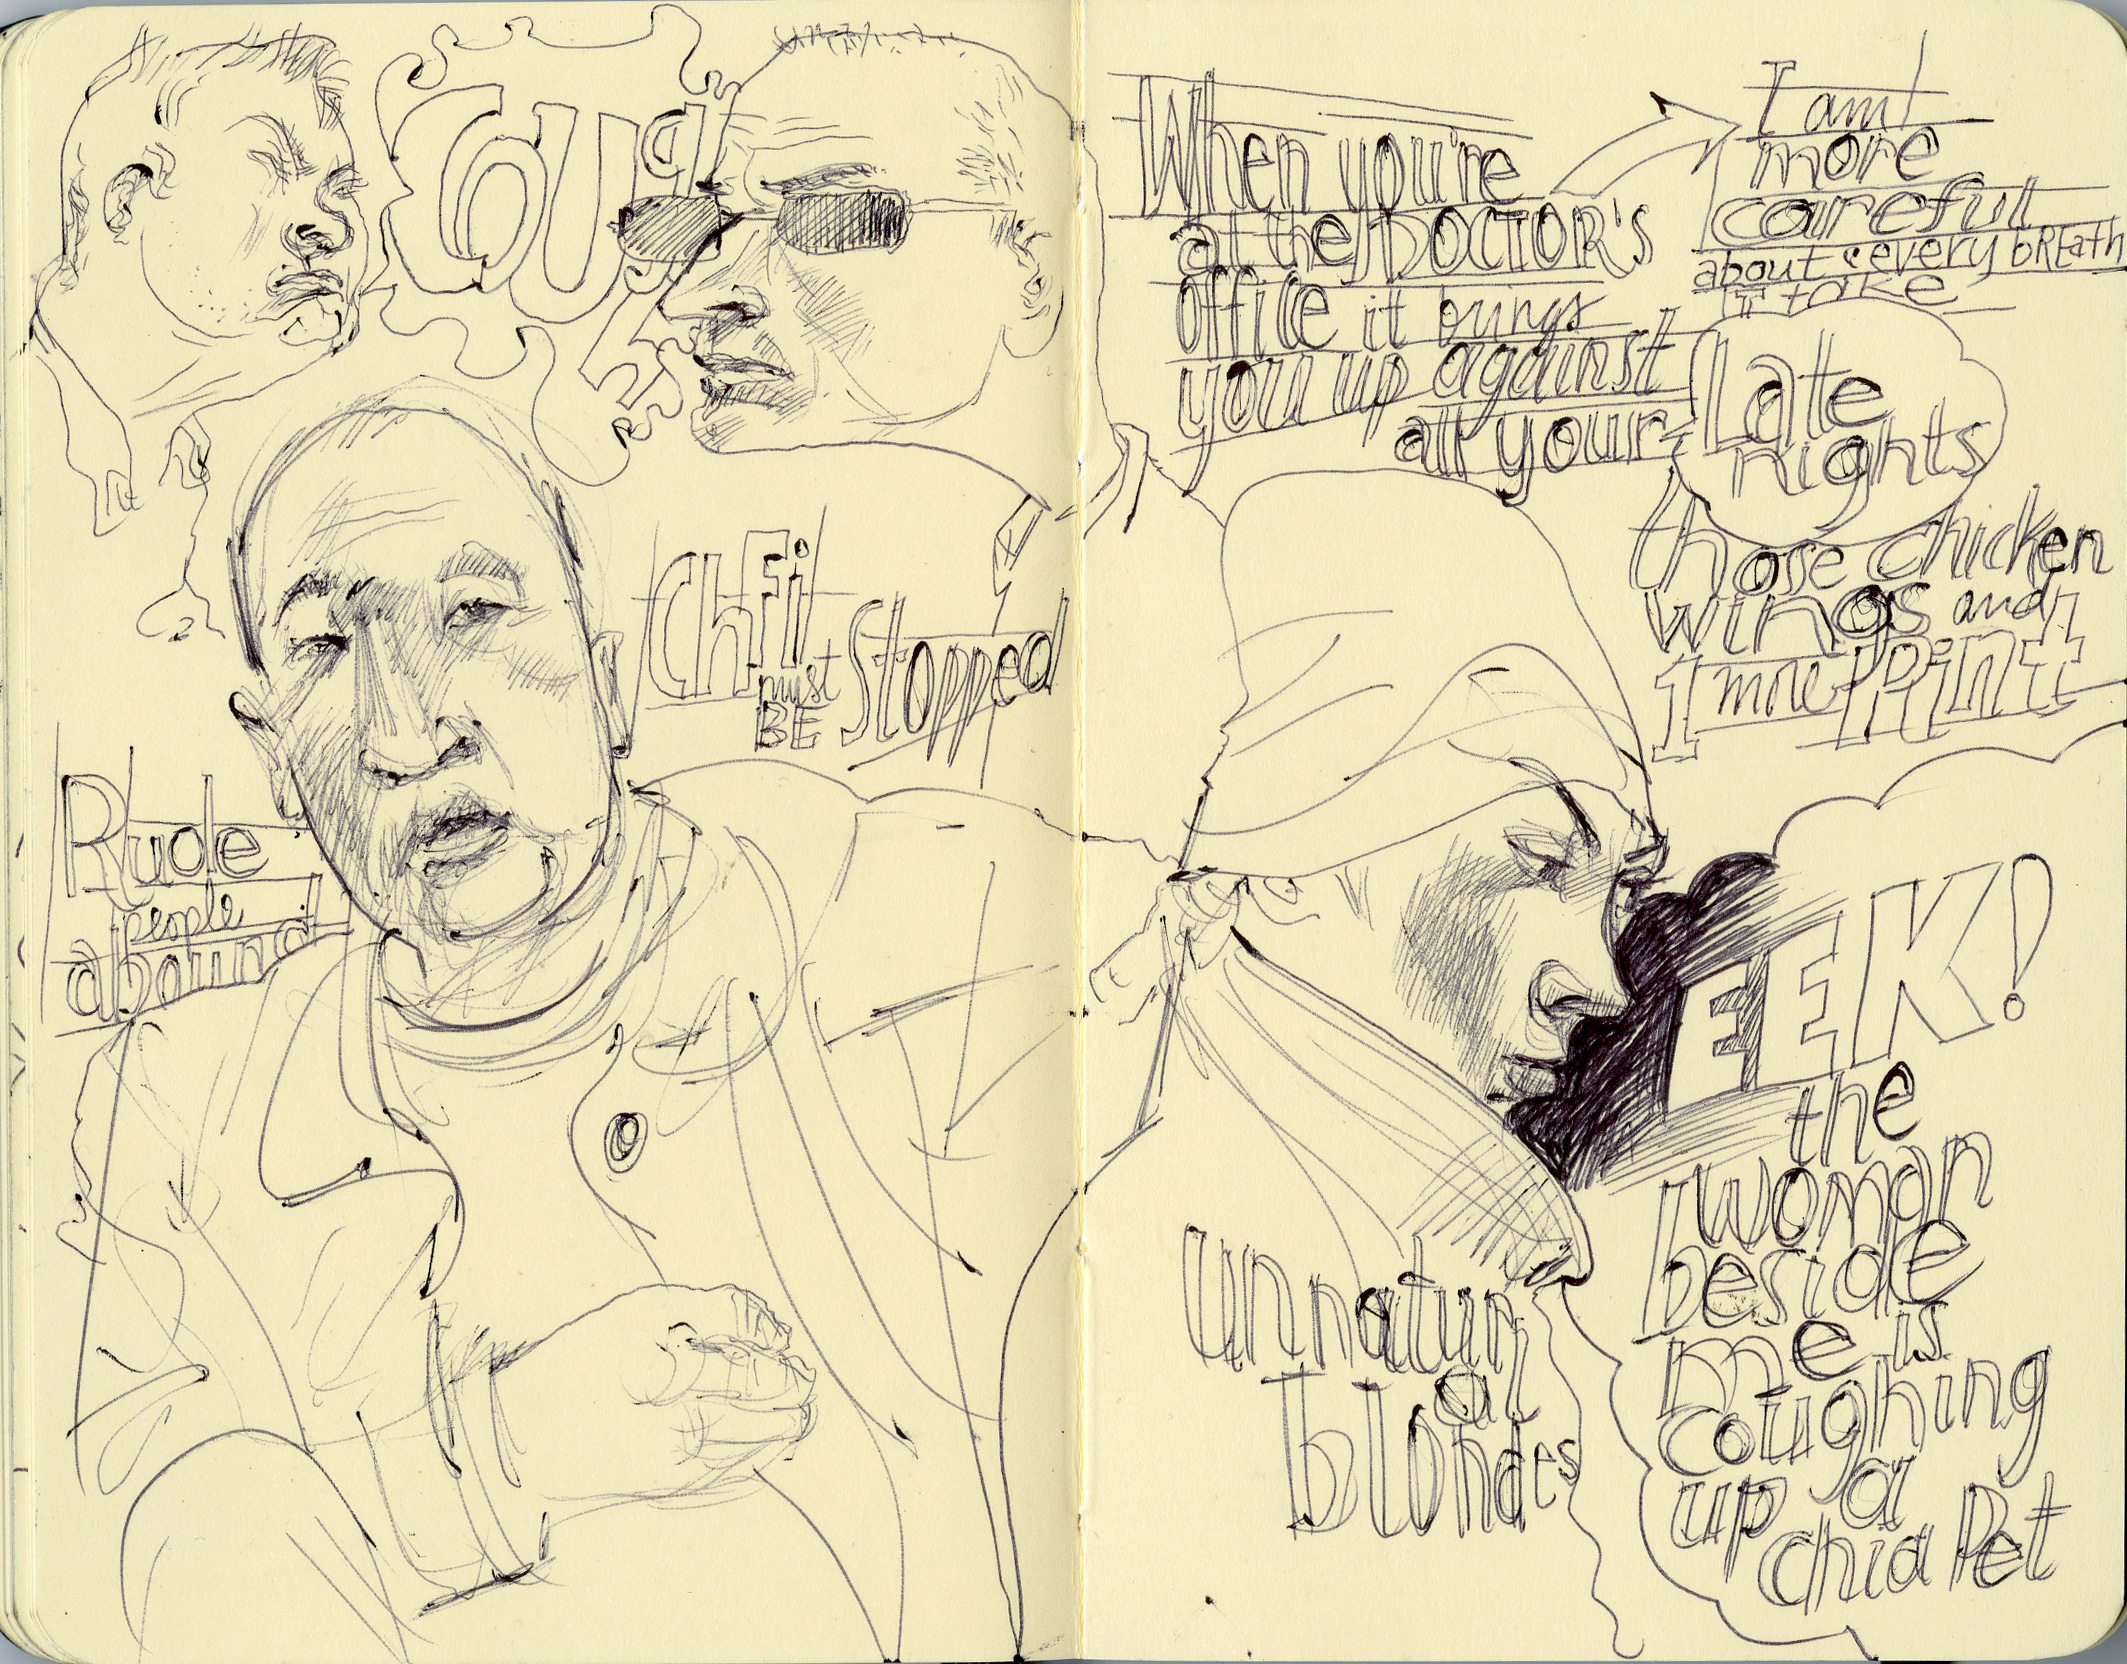 Cough
Chefi
must
BE
Stopped
Rude
people
abound
When you're
at the DOCTOR'S
office it brings
you up against
all your
Late
nights
those chicken
wings and
1 more PRiNt
I am
more
careful
about every bREath
I take
EEK!
the
woman
beside
me is
coughing
up a
chia Pet
unnatural
blondes